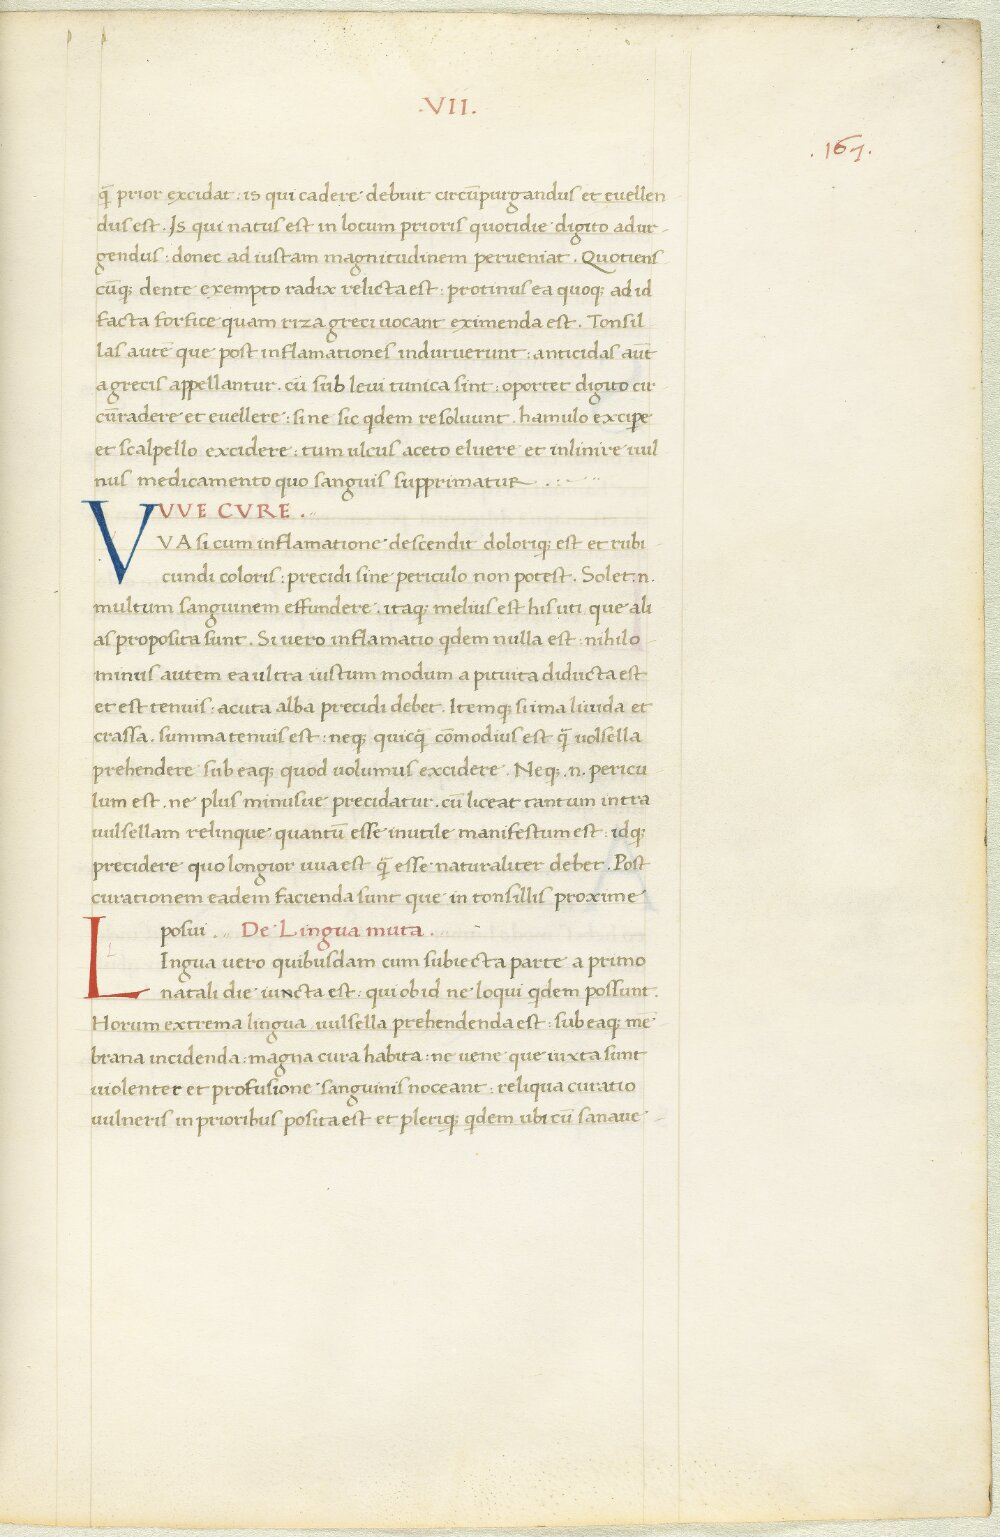 .VII.
.167.
q̄ prior excidat : is qui cadere debuit circūpurgandus et euellen
dus est . Is qui natus est in locum prioris quotidie digito adur
gendus : donec ad iustam magnitudinem perueniat . Quotiens
cūq; dente exempto radix relicta est : protinus ea quoq; ad id
facta forfice quam riza greci uocant eximenda est . Tonsil
las autē que post inflamationes induruerunt : anticidas aūt
a grecis appellantur . cū sub leui tunica sint : oportet digito cir
cūradere et euellere : si ne sic qdem resoluunt . hamulo excipe
et scalpello excidere : tum ulcus aceto eluere et inlinire uul
nus medicamento quo sanguis supprimatur .
VVVE CVRE .
VA si cum inflamatione descendit doloriq; est et rubi
cundi coloris : precidi sine periculo non potest . Solet .n.
multum sanguinem effundere . itaq; melius est his uti que ali
as proposita sunt . Si uero inflamatio qdem nulla est : nihilo
minus autem ea ultra iustum modum a pituita diducta est
et est tenuis : acuta alba precidi debet . Itemq; si ima liuida et
crassa . summa tenuis est : neq; quicq̄ cōmodius est q̄ uolsella
prehendere sub eaq; quod uolumus excidere . Neq; .n. pericu
lum est . ne plus minusue precidatur . cū liceat tantum intra
uulsellam relinque quantū esse inutile manifestum est : idq;
precidere quo longior uua est q̄ esse naturaliter debet . Post
curationem eadem facienda sunt que in tonsillis proxime
posui . De Lingua muta .
LIngua uero quibusdam cum subiecta parte a primo
natali die iuncta est : qui ob id ne loqui qdem possunt .
Horum extrema lingua uulsella prehendenda est : sub eaq; mē
brana incidenda : magna cura habita : ne uene que iuxta sunt
uiolenter et profusione sanguinis noceant : reliqua curatio
uulneris in prioribus posita est et pleriq; qdem ubi cū sanaue